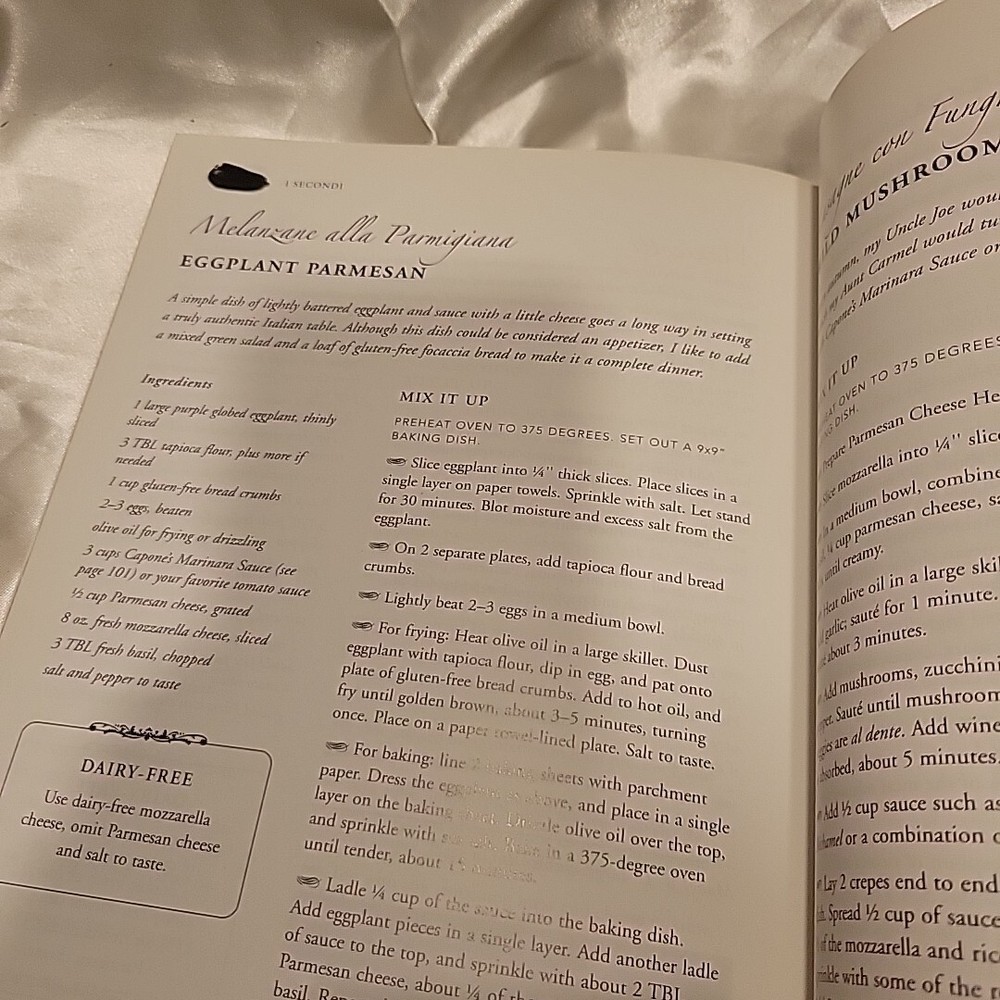 I SECONDI
Melanzane alla Parmigiana
EGGPLANT PARMESAN
A simple dish of lightly battered eggplant and sauce with a little cheese goes a long way in setting
a truly authentic Italian table. Although this dish could be considered an appetizer, I like to add
a mixed green salad and a loaf of gluten-free focaccia bread to make it a complete dinner.
Ingredients
1 large purple globed eggplant, thinly
sliced
3 TBL tapioca flour, plus more if
needed
1 cup gluten-free bread crumbs
2–3 eggs, beaten
olive oil for frying or drizzling
3 cups Capone's Marinara Sauce (see
page 101) or your favorite tomato sauce
½ cup Parmesan cheese, grated
8 oz. fresh mozzarella cheese, sliced
3 TBL fresh basil, chopped
salt and pepper to taste
DAIRY-FREE
Use dairy-free mozzarella
cheese, omit Parmesan cheese
and salt to taste.
MIX IT UP
PREHEAT OVEN TO 375 DEGREES. SET OUT A 9x9"
BAKING DISH.
Slice eggplant into ¼" thick slices. Place slices in a
single layer on paper towels. Sprinkle with salt. Let stand
for 30 minutes. Blot moisture and excess salt from the
eggplant.
On 2 separate plates, add tapioca flour and bread
crumbs.
Lightly beat 2–3 eggs in a medium bowl.
For frying: Heat olive oil in a large skillet. Dust
eggplant with tapioca flour, dip in egg, and pat onto
plate of gluten-free bread crumbs. Add to hot oil, and
fry until golden brown, about 3–5 minutes, turning
once. Place on a paper towel-lined plate. Salt to taste.
For baking: line 2 sheets with parchment
paper. Dress the above, and place in a single
layer on the baking olive oil over the top,
and sprinkle with in a 375-degree oven
until tender, about
Ladle ¼ cup of the sauce into the baking dish.
Add eggplant pieces in a single layer. Add another ladle
of sauce to the top, and sprinkle with about 2 TBL
Parmesan cheese, about ¼ of the
basil.
con Fungi
MUSHROOM
my Uncle Joe would
my Aunt Carmel would
Capone's Marinara Sauce or
IT UP
OVEN TO 375 DEGREES
DISH.
Prepare Parmesan Cheese
Slice mozzarella into ¼"
In a medium bowl, combine
¼ cup parmesan cheese,
until creamy.
Heat olive oil in a large
garlic; sauté for 1 minute.
about 3 minutes.
Add mushrooms,
Sauté until
are al dente. Add wine
absorbed, about 5 minutes.
Add ½ cup sauce such as
or a combination
Lay 2 crepes end to end
Spread ½ cup of sauce
of the mozzarella and
with some of the